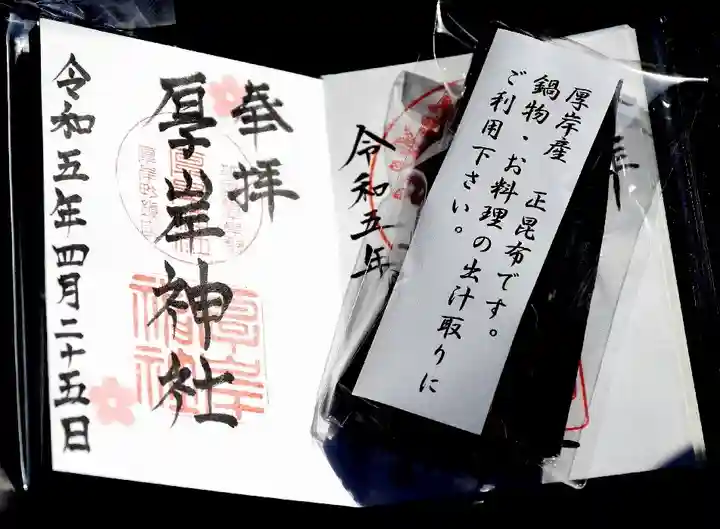 奉拝
厚岸神社
令和五年四月二十五日
厚岸産　正昆布です。
鍋物、お料理の出汁取りに
ご利用下さい。
令和五年